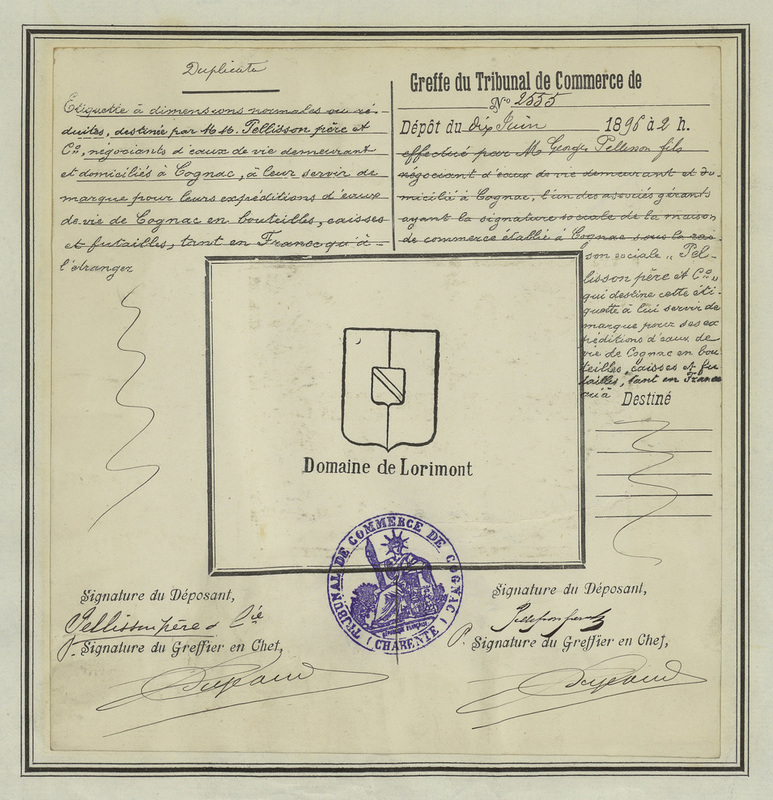 Duplicata
Etiquette à dimensions normales ou ré-
duites, destinée par M.M. Pellisson père et
Cº, négociants d'eaux de vie demeurant
et domiciliés à Cognac, à leur servir de
marque pour leurs expéditions d'eaux
de vie de Cognac en bouteilles, caisses
et futailles, tant en France qu'à
l'étranger
Greffe du Tribunal de Commerce de
Nº 2555
Dépôt du dix Juin 1896 à 2 h.
effectué par M Georges Pellisson fils
négociant d'eaux de vie demeurant et do-
micilié à Cognac, l'un des associés gérants
ayant la signature sociale de la maison
de commerce établie à Cognac sous la rai-
son sociale „ Pel-
lisson père et Cº „
qui destine cette éti-
quette à lui servir de
marque pour ses ex
péditions d'eaux de
vie de Cognac en bou
teilles, caisses et fu
tailles, tant en France
qu'à
Destiné
Domaine de Lorimont
TRIBUNAL DE COMMERCE DE COGNAC
(CHARENTE)
Signature du Déposant,
Pellisson père & Cie
P. Signature du Greffier en Chef,
Signature du Déposant,
P. Signature du Greffier en Chef,